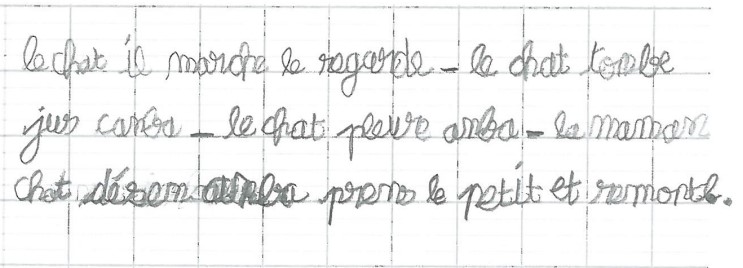 le chat il marche le regarde _ le chat tombe
jus canba _ le chat pleure anba _ la maman
chat désen anba prens le petit et remonte.